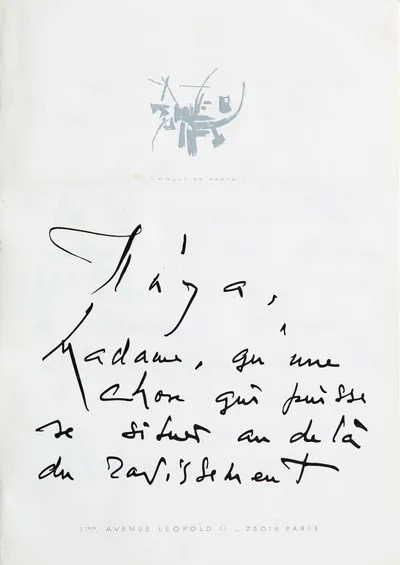 Il n'y a,
Madame, qu'une
chose qui puisse
se situer au delà
du ravissement
AVENUE LÉOPOLD II _ 75016 PARIS